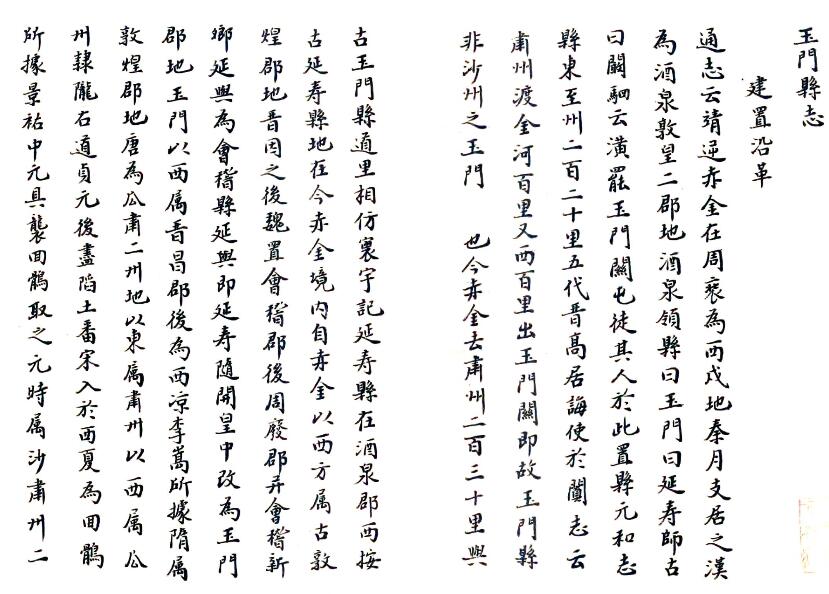 玉門縣志
建置沿革
通志云靖逆赤金在周衰為西戎地秦月支居之漢
為酒泉敦皇二郡地酒泉領縣曰玉門曰延寿師古
曰闞駰云漢罷玉門關屯徒其人於此置縣元和志
縣東至州二百二十里五代晋高居誨使於闐志云
肅州渡金河百里又西百里出玉門關即故玉門縣
非沙州之玉門 也今赤金去肅州二百三十里與
古玉門縣道里相仿寰宇記延寿縣在酒泉郡西按
古延寿縣地在今赤金境内自赤金以西方属古敦
煌郡地晋因之後魏置會稽郡後周廢郡并會稽新
鄉延興為會稽縣延興即延寿隨開皇中改為玉門
郡地玉門以西属晋昌郡後為西凉李暠所據隋属
敦煌郡地唐為瓜肅二州地以東属肅州以西属瓜
州隸隴右道貞元後盡陷土番宋入於西夏為回鶻
所據景祐中元具襲回鶻取之元時属沙肅州二